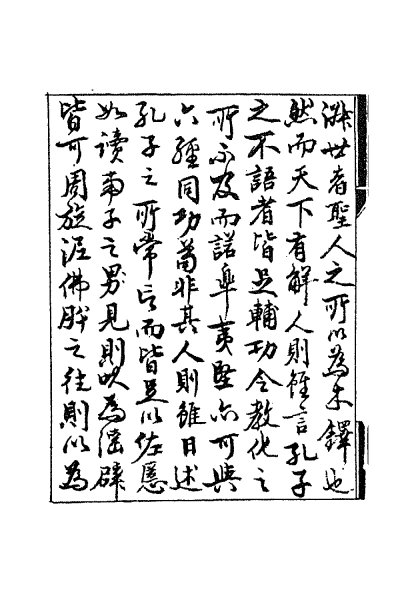 淑世者聖人之所以為木鐸也
然而天下有解人則雖言孔子
之不語者皆足輔功令教化之
所不及而諾皋夷堅亦可與
六經同功苟非其人則雖日述
孔子之所常言而皆足以佐慝
如讀南子之見則以為淫辟
皆可周旋泥佛肸之往則以為